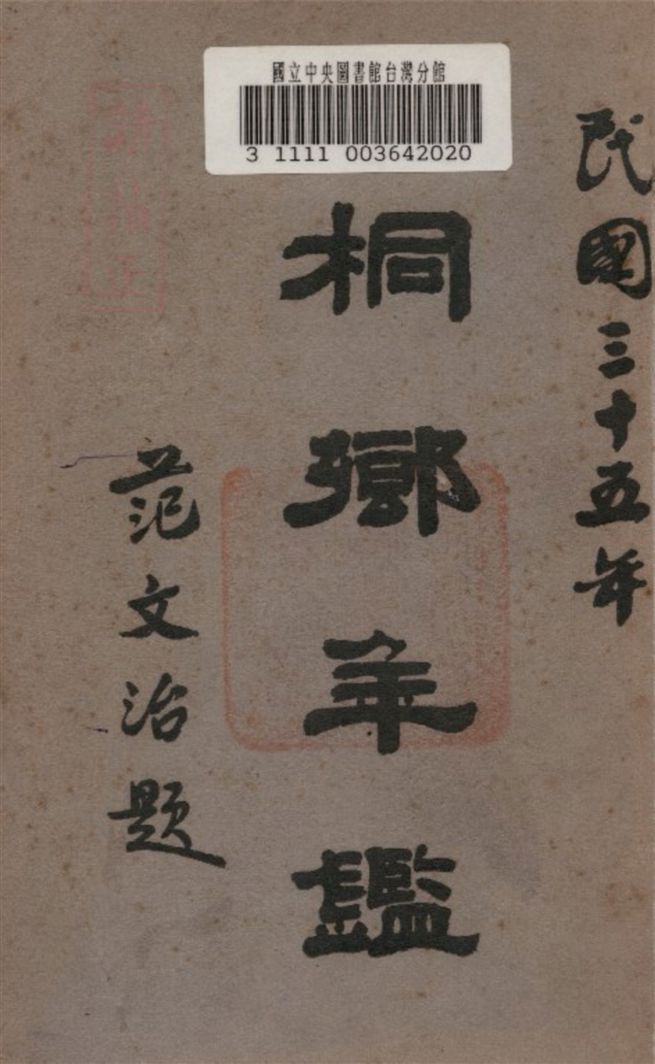 國立中央圖書館台灣分館
3 1111 003642020
民國三十五年
桐鄉年鑑
范文治題
請指正